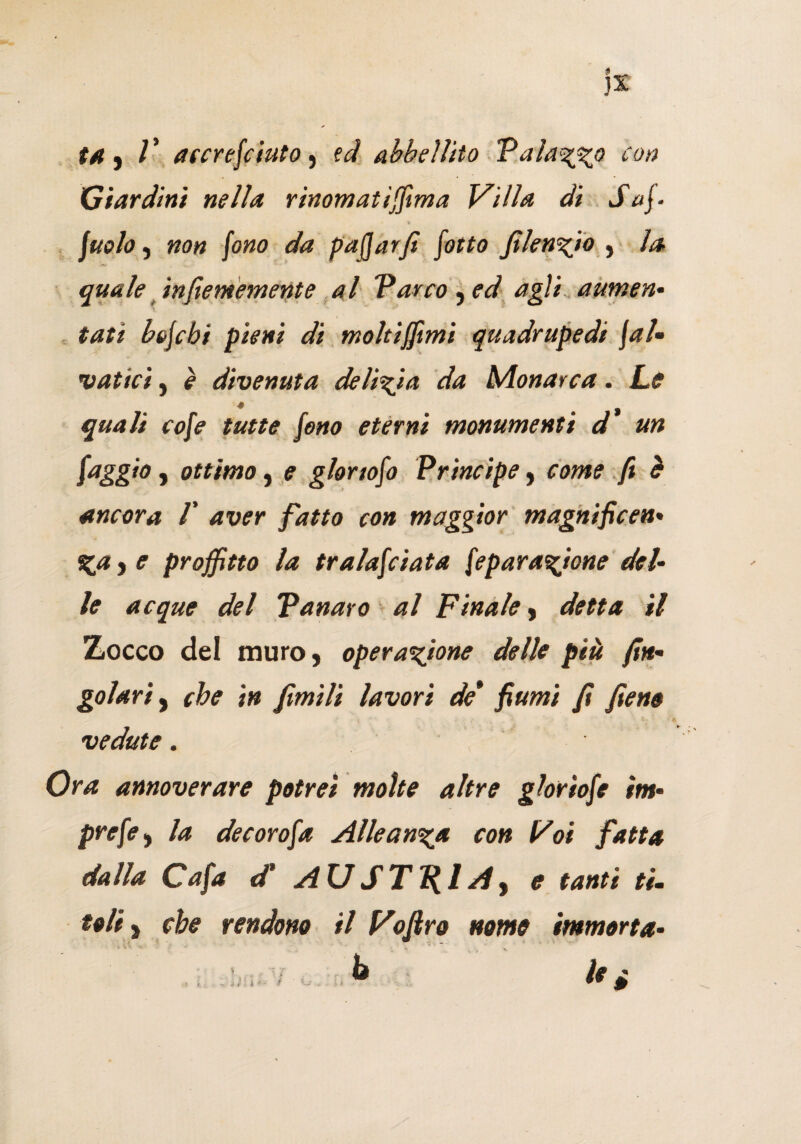 jx
ta, l' accreſciuto, ed abbellito Palazzo con
Giardini nella rinomatiſſima Villa di Saſ-
ſuolo, non ſono da paſſarſi ſotto ſilenzio, la
quale inſiememente al Parco, ed agli aumen-
tati boſchi pieni di moltiſſimi quadrupedi ſal-
vatici, è divenuta delizia da Monarca. Le
quali coſe tutte ſono eterni monumenti d' un
ſaggio, ottimo, e glorioſo Principe, come ſi è
ancora l' aver fatto con maggior magnificen-
za, e proffitto la tralaſciata ſeparazione del-
le acque del Panaro al Finale, detta il
Zocco del muro, operazione delle più ſin-
golari, che in ſimili lavori de' fiumi ſi ſieno
vedute.
Ora annoverare potrei molte altre glorioſe im-
preſe, la decoroſa Alleanza con Voi fatta
dalla Caſa d' AUSTRIA, e tanti ti-
toli, che rendono il Voſtro nome immorta-
b le;